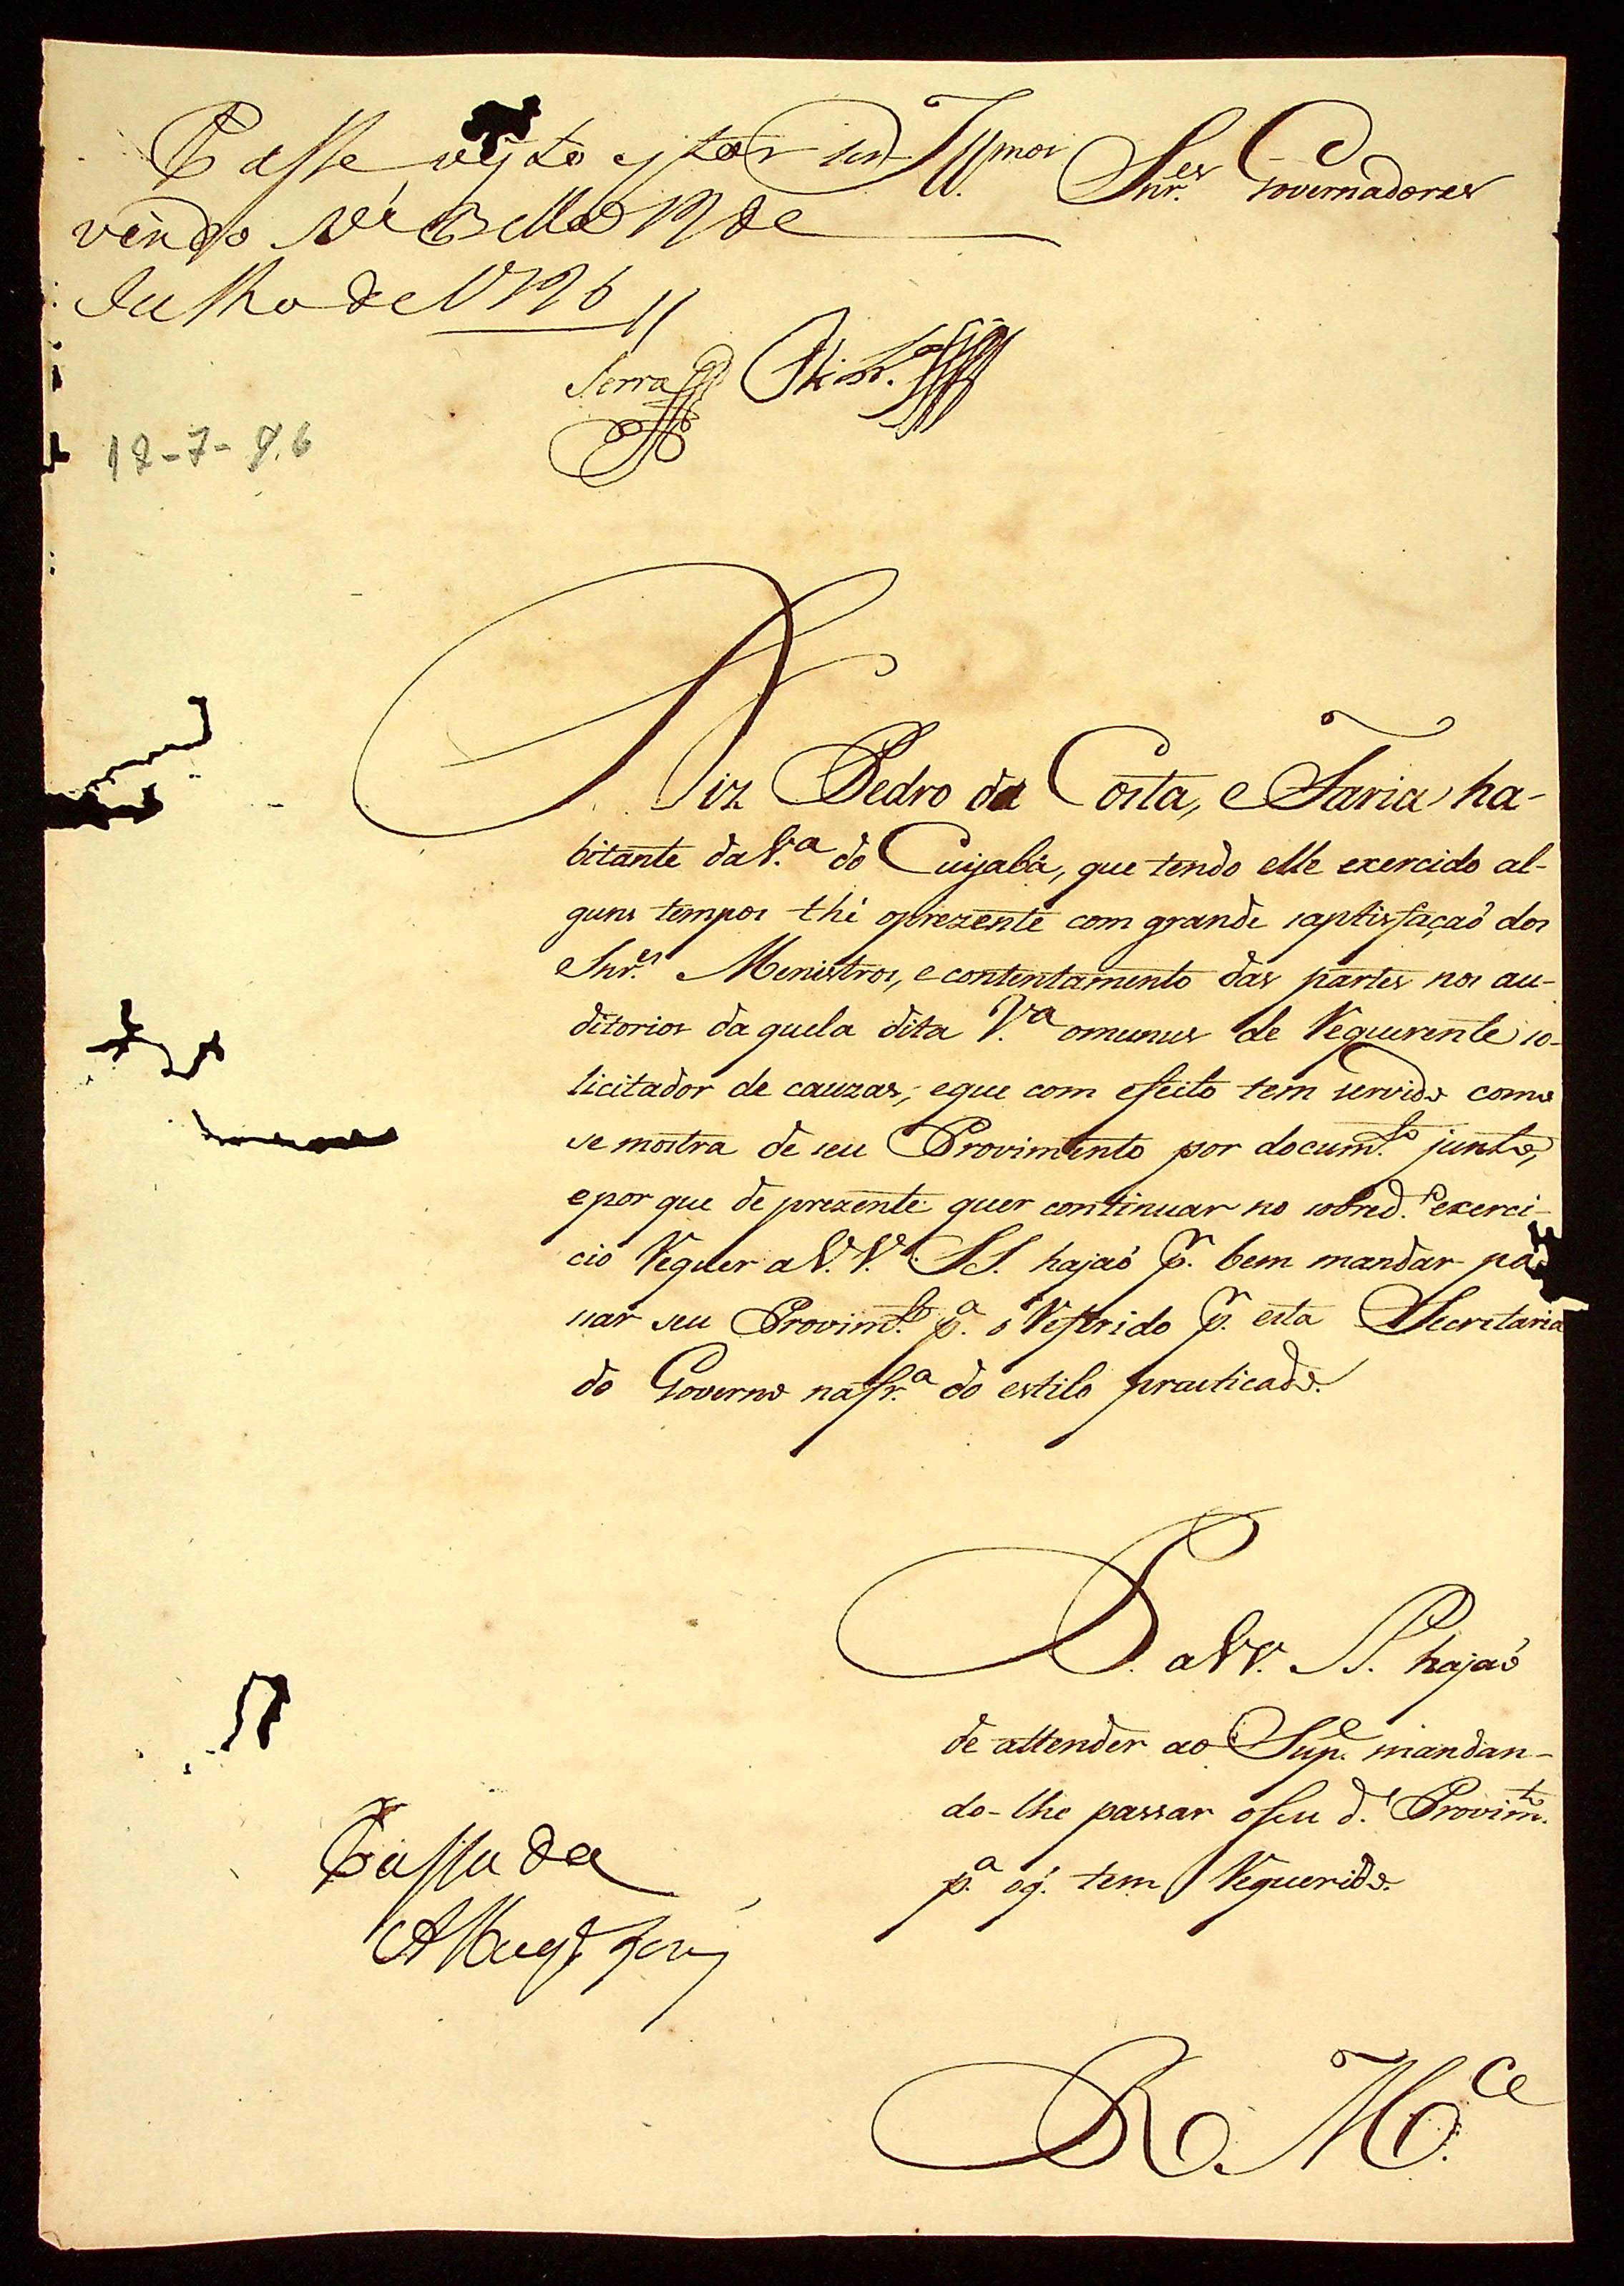 Passe visto estar ser-
vindo Va Bella 12 de
Julho de 1796 //
Illmos Snr.es Governadores
Serra
12-7-96
Diz Pedro da Costa, e Faria ha-
bitante da V.a do Cuyabá, que tendo elle exercido al-
guns tempos thé oprezente com grande saptisfaçaõ dos
Snr.es Menistros, e contentamento das partes nos au-
ditorios da quela dita V.a omunus de Requerente so-
licitador de cauzas; eque com efeito tem servido como
se mostra de seu Provimento por docum.to junto,
epor que de prezente quer continuar no sobred.o exerci-
cio Requer a V.V. SS. hajaõ p.r bem mandar pa
sar seu Provim.to p.a o Referido p.r esta Secretaria
do Governo na fr.a do estilo practicado.
P. a VV. SS. hajaõ
de attender ao Sup.e mandan-
do-lhe passar oseu d.o Provim.to
p.a oq. tem Requerido.
Passada
R. M.ce